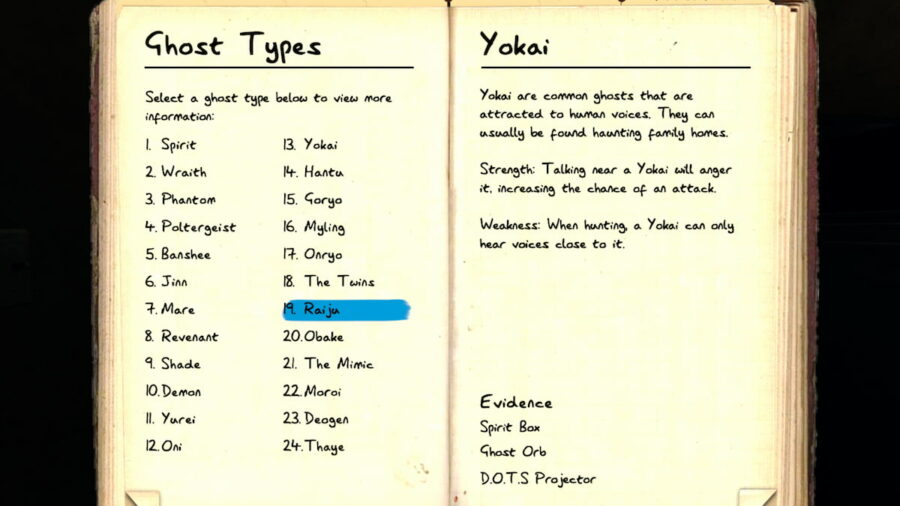 Ghost Types
Select a ghost type below to view more
information:
1. Spirit
2. Wraith
3. Phantom
4. Poltergeist
5. Banshee
6. Jinn
7. Mare
8. Revenant
9. Shade
10. Demon
11. Yurei
12. Oni
13. Yokai
14. Hantu
15. Goryo
16. Myling
17. Onryo
18. The Twins
19. Raiju
20. Obake
21. The Mimic
22. Moroi
23. Deogen
24. Thaye
Yokai
Yokai are common ghosts that are
attracted to human voices. They can
usually be found haunting family homes.
Strength: Talking near a Yokai will anger
it, increasing the chance of an attack.
Weakness: When hunting, a Yokai can only
hear voices close to it.
Evidence
Spirit Box
Ghost Orb
D.O.T.S Projector